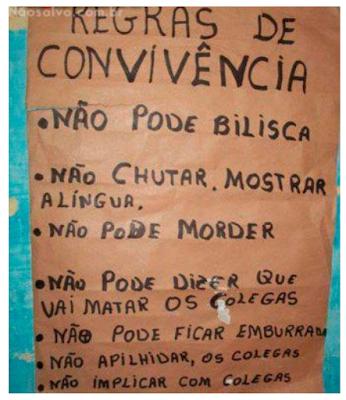 Nãosalvo.com.br
REGRAS DE
CONVIVÊNCIA
•NÃO PODE BILISCA
•NÃO CHUTAR. MOSTRAR
A LÍNGUA.
•NÃO PODE MORDER
•NÃO PODE DIZER QUE
VAI MATAR OS COLEGAS
•NÃO PODE FICAR EMBURRADA
•NÃO APILHIDAR, OS COLEGAS
•NÃO IMPLICAR COM COLEGAS